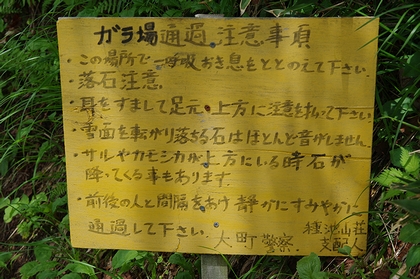 ガラ場通過注意事項
・この場所で一呼吸おき息をととのえて下さい.
・落石注意.
・耳をすまして足元、上方に注意を払って下さい.
・雪面を転がり落ちる石はほとんど音がしません.
・サルやカモシカが上方にいる時石が
降ってくる事もあります.
・前後の人と間隔をあけ静かにすみやかに
通過して下さい.
大町警察.
種池山荘
支配人